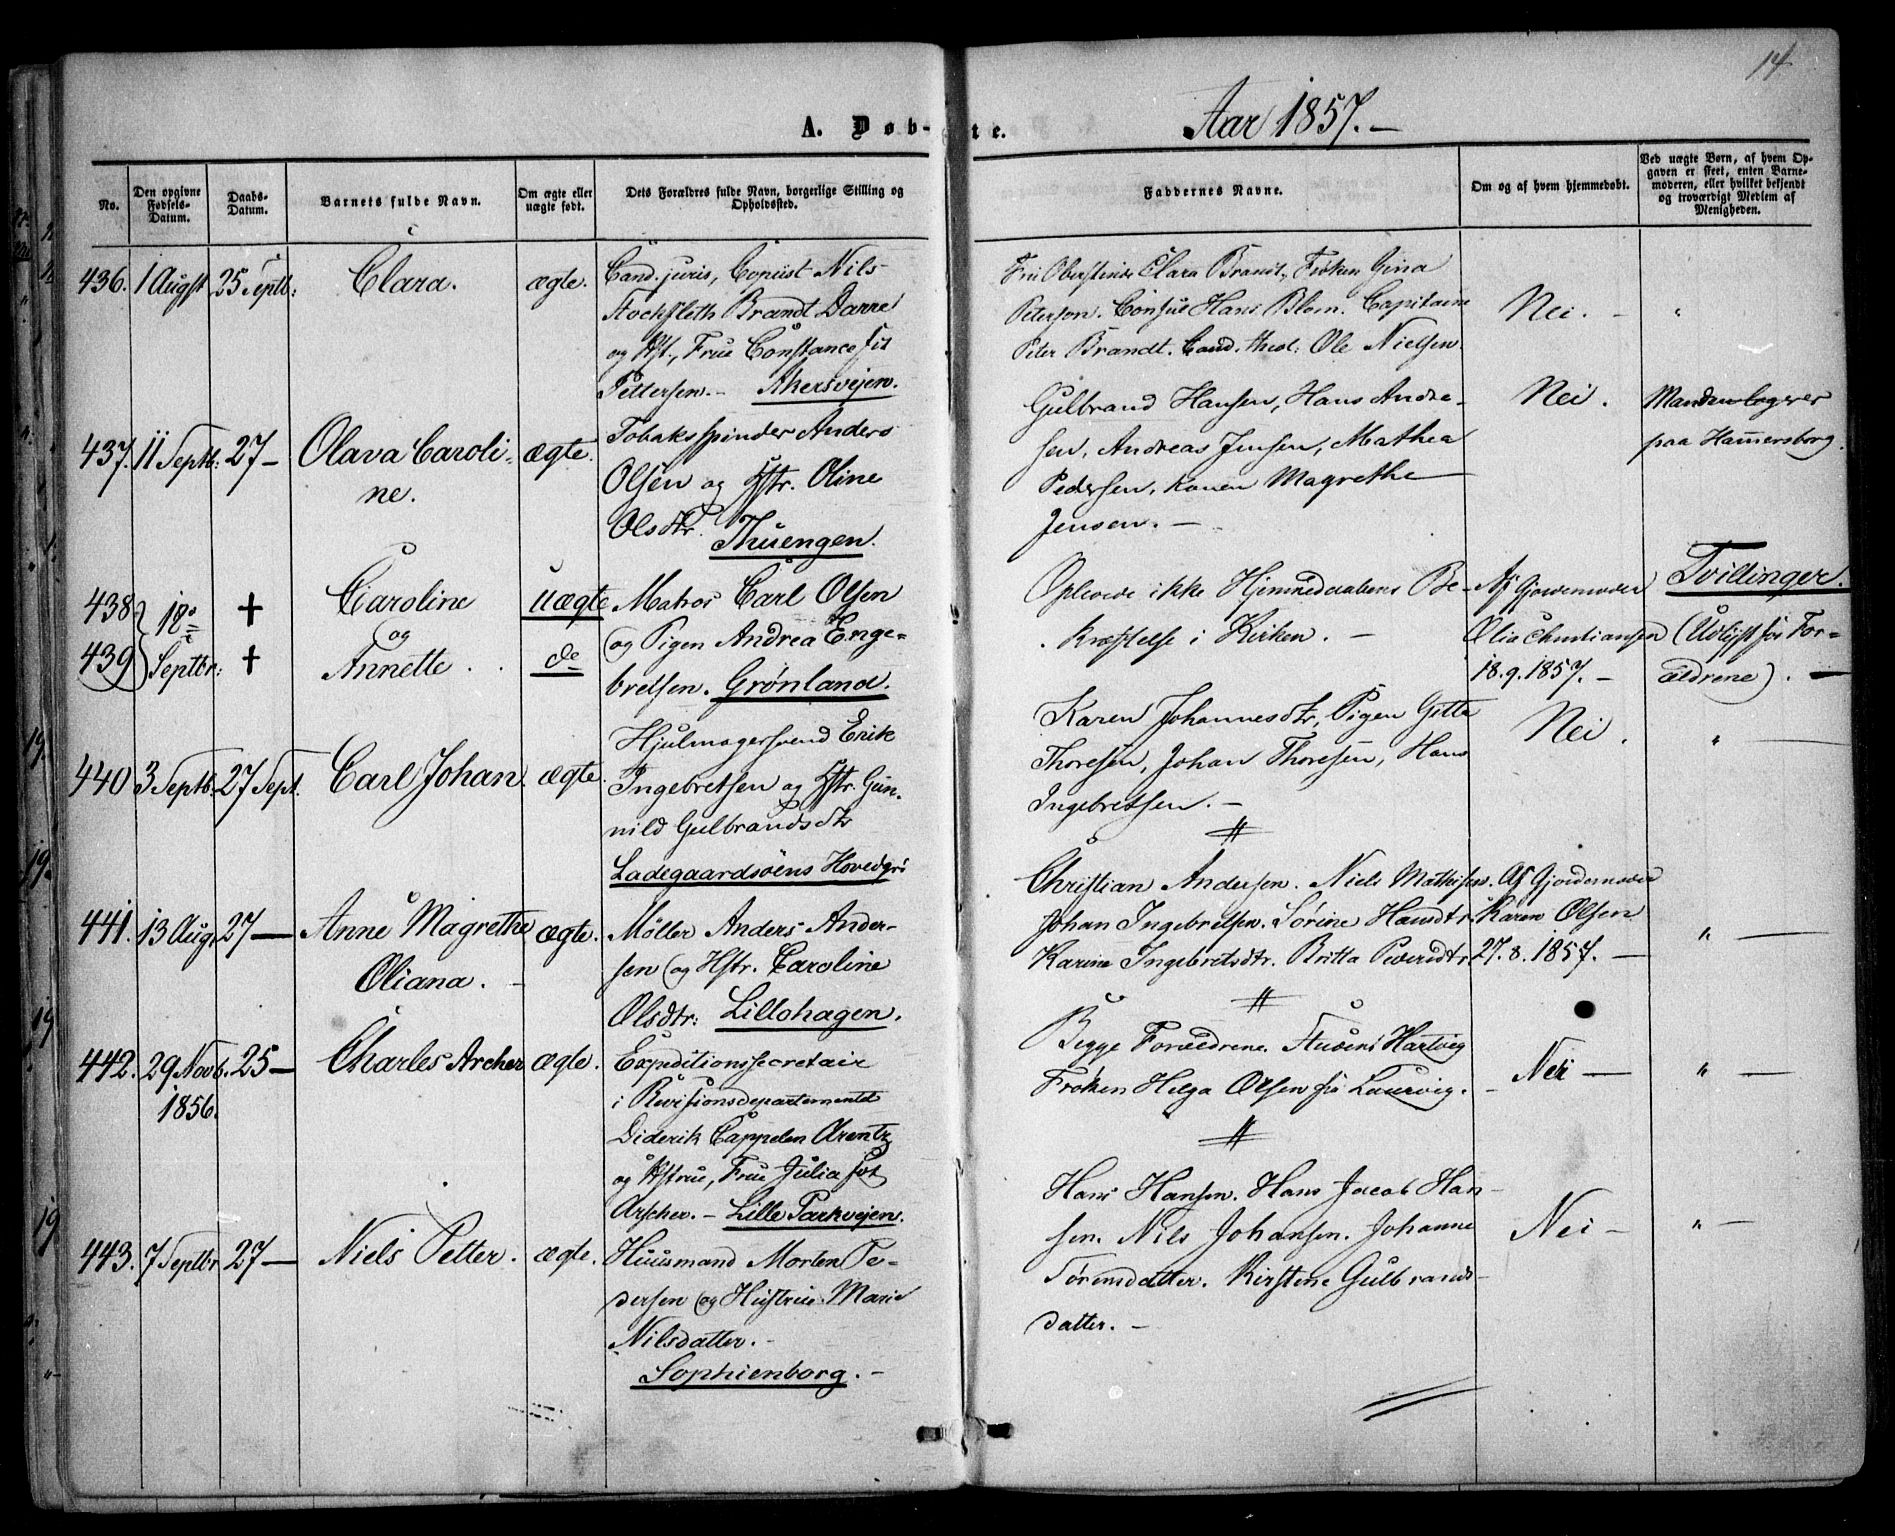 14
A. Døb-te.
Aar 1857.-
No.
Den opgivne Fødsels-Datum.
Daabs-Datum.
Barnets fulde Navn.
Om ægte eller uægte født.
Dets Forældres fulde Navn, borgerlige Stilling og Opholdssted.
Faddernes Navne.
Om og af hvem hjemmedøbt.
Ved uægte Børn, af hvem Opgaven er skeet, enten Barnemoderen, eller hvilket bekjendt og troværdigt Medlem af Menigheden.
436. 1 Augst 25 Septb: Clara. ægte.
Cand. juris, Copiist Nils
Stockfleth Brandt Darre
og Hst., Frue Constance f:
Pettersen. - Akersvejen.
Clara Brandt, Frøken Gina
Peterson. Consul Hans Blom. Capitaine
Peter Brandt. Cand. theol: Ole Nielsen.
Nei. - "
437. 11 Septb: 27 - Olava Caroli-
ne.
ægte.
Tobaksspinder Anders
Olsen og Hstr. Oline
Olsdtr. Thuengen.
Gulbrand Hansen, Hans Andre-
sen, Andreas Jensen, Mathea
Pedersen, konen Magrethe
Jensen. -
Nei.
Manden logerer
paa Hamersborg.
438 18de + Caroline uægte
og
439 Septbr: + Annette. de
Matros Carl Olsen
og Pigen Andrea Enge-
bretsen. Grønland.
Oplevede ikke Hjemmedaabens Be-
kræftelse i Kirken. -
Af Gjordemoder
Olia Christiansen
18.9.1857. -
Tvillinger.
(Udlyst for For-
ældrene). -
440 3 Septb. 27 Sept. Carl Johan. ægte.
Hjulmagersvend Erik
Ingebretsen og Hstr. Gun-
nild Gulbrandsdtr
Ladegaardsöens Hovedgrd
Karen Johannesdtr, Pigen Gitte
Thoresen, Johan Thoresen, Hans
Ingebretsen. -
Nei. "
441. 13 Aug. 27 - Anne Magrethe
Oliana. -
ægte.
Møller Anders Ander-
sen og Hstr. Caroline
Olsdtr: Lillohagen.
Christian Andersen. Niels Mathisen.
Johan Ingebretsen. Sørine Hansdtr.
Karine Ingebretsdtr. Britta Pedersdtr.
Af Gjordemoder
Karen Olsen
27.8.1857. -
" -
442. 29 Novb. 25 - Charles Archer ægte.
1856.
Expeditionssecretair
i Revisionsdepartementet
Diderik Cappelen Arentz
og Hstrue, Frue Julia fdt
Archer. - Lille Parkvejen.
Begge Forældrene. Student Hartvig
Frøken Helga Olsen fra Laurvig. -
Nei - " -
443. 7 Septbr 27 - Niels Petter. ægte.
Huusmand Morten Pe-
dersen og Hustrue Marie
Nilsdatter. -
Sophienborg. -
Hans Hansen. Hans Jacob Han-
sen. Nils Johansen. Johanne
Sørensdatter. Kirstine Gulbrands-
datter. -
Nei - " -